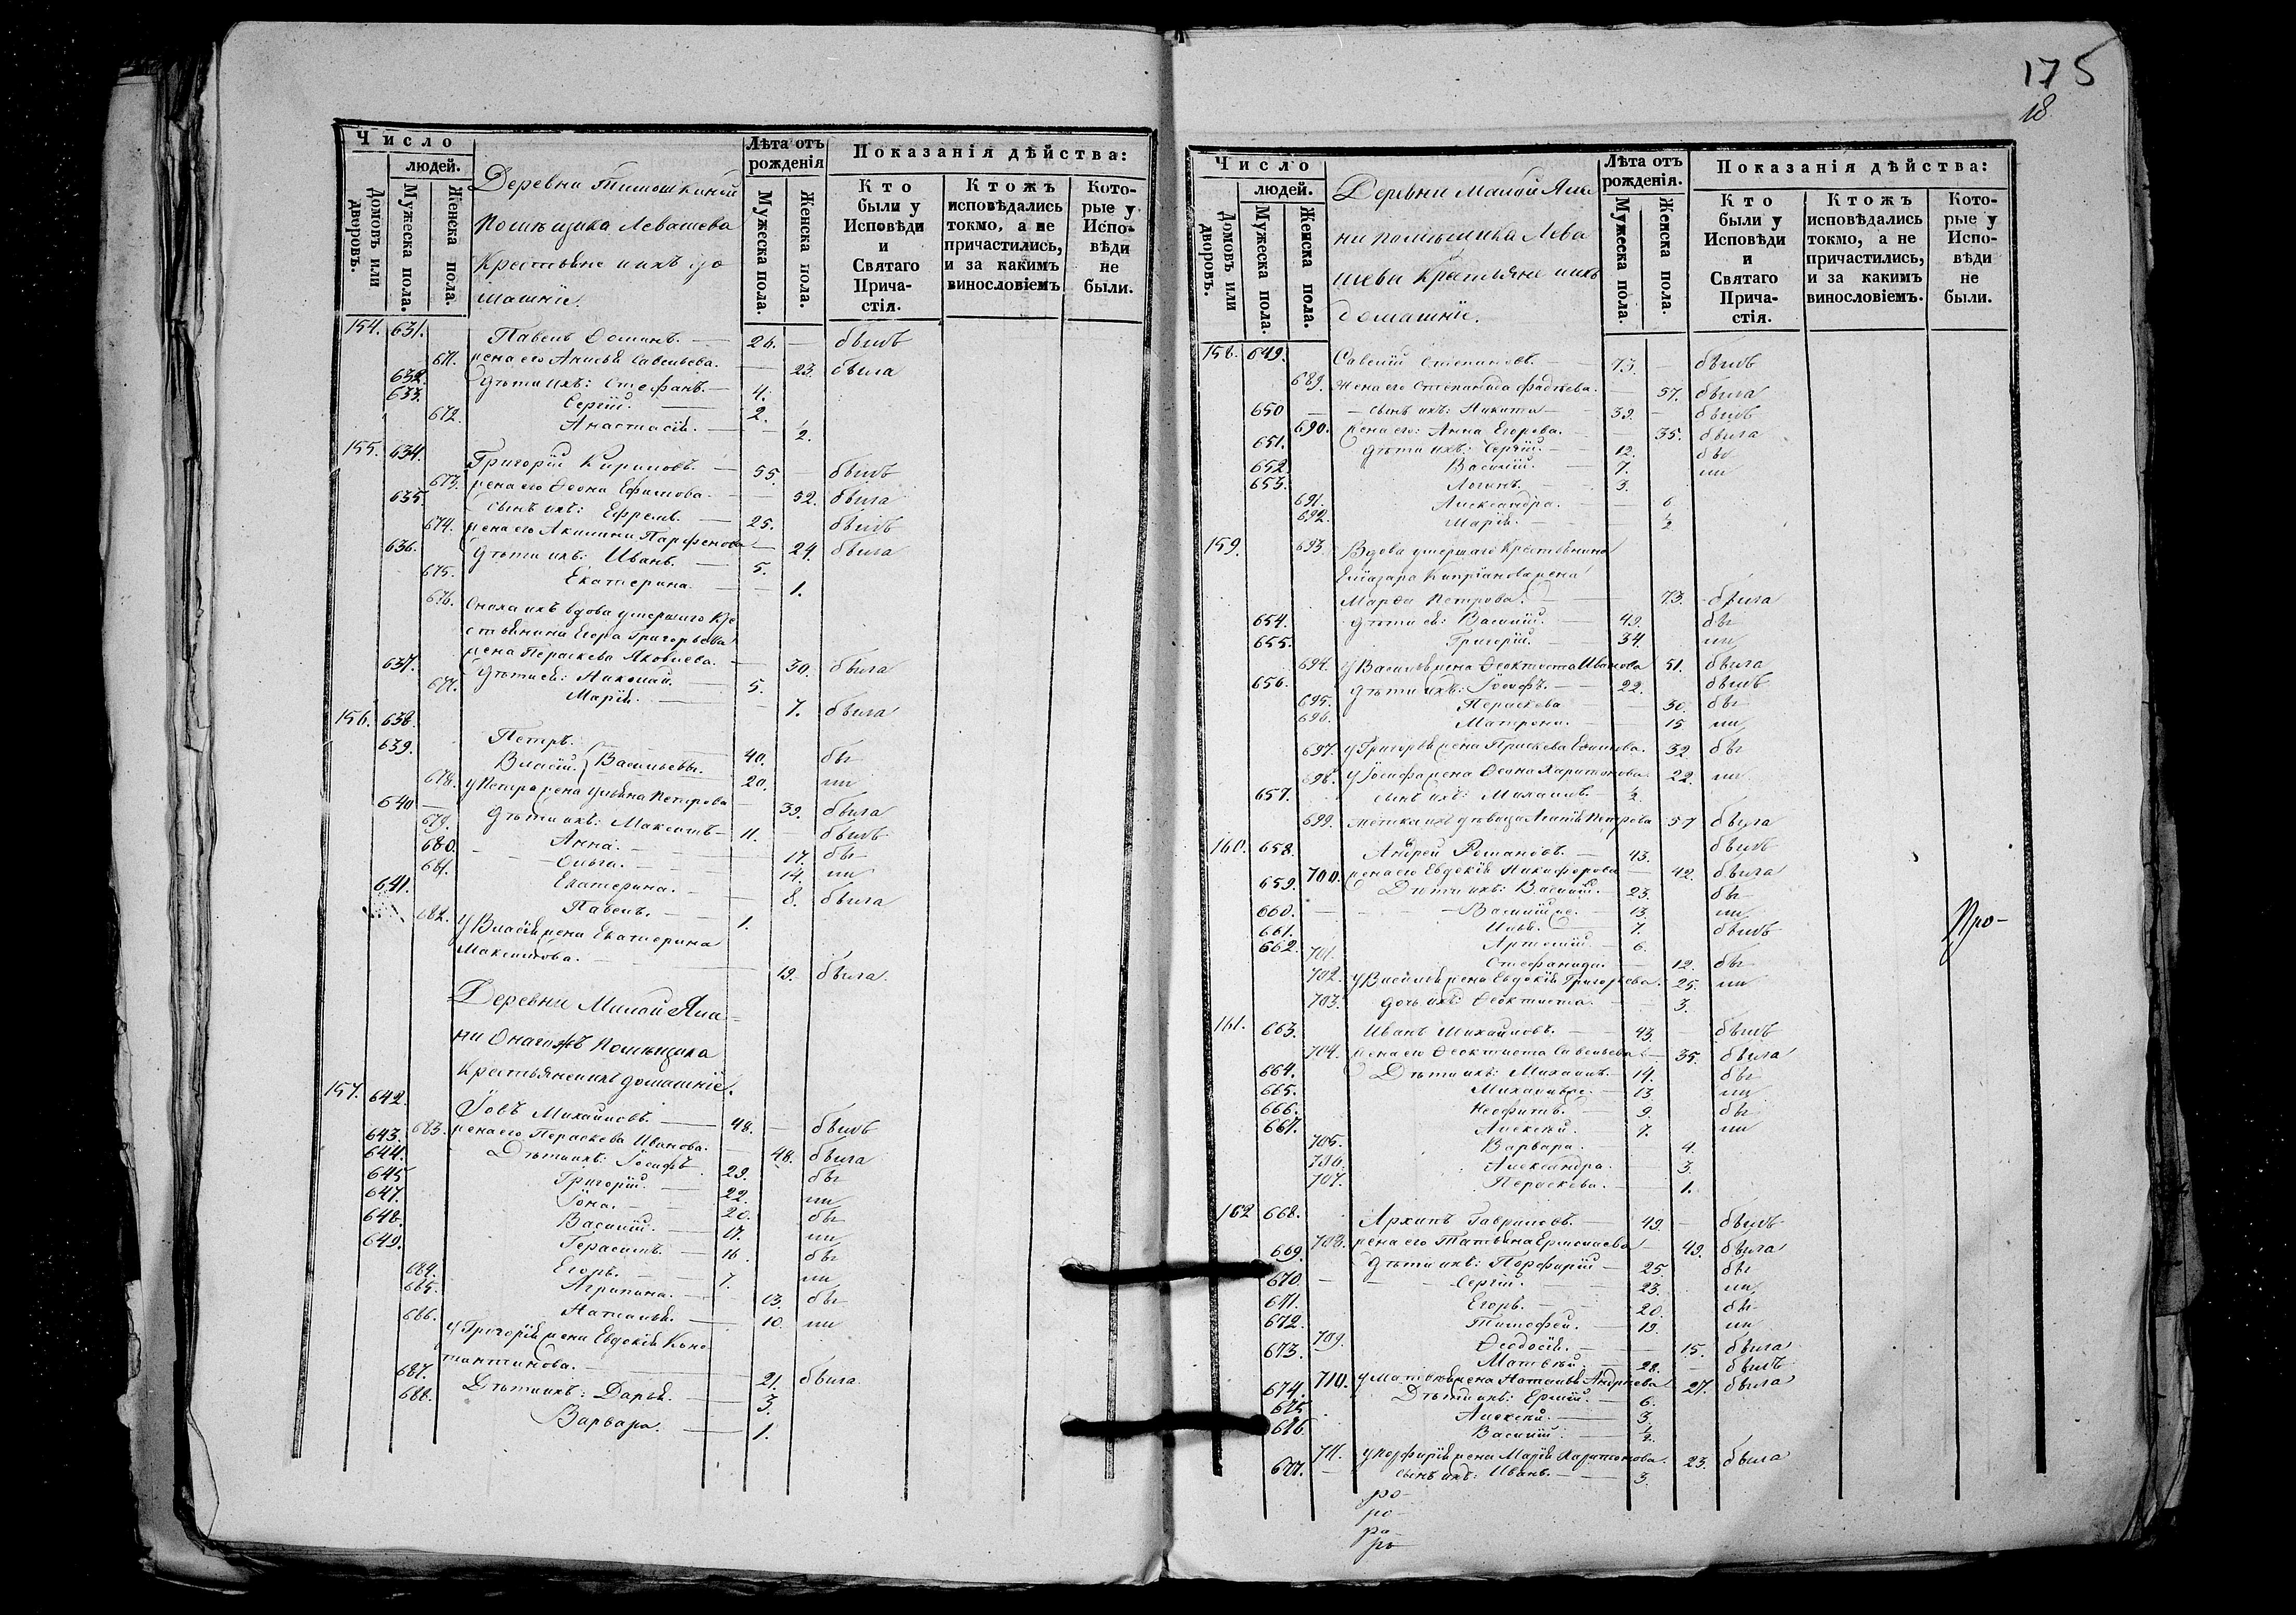 175
18
Число
людей.
Домовъ или дворовъ.
Мужеска пола.
Женска пола.
Деревни Тимошкиной
Помѣщика Левашева
Крестьяне и ихъ до
машніе.
Лѣта отъ рожденія
Мужеска пола.
Женска пола.
Показанія дѣйства:
Кто были у Исповѣди и Святаго Прича- стія.
Ктожъ исповѣдались токмо, а не причастились, и за какимъ винословіемъ
Кото- рые у Испо- вѣди не были.
154. 631. Павелъ Фоминъ. — 26. — былъ
671. жена его Анисья Савельева. — 23. была
632. Дѣти ихъ: Стефанъ. — 4.
633. Сергій. — 2.
672. Анастасія. — 1/2.
155. 634. Григорій Кириловъ. — 55. — былъ
673. жена его Ѳеона Ефимова. — 52. была
635. Сынъ ихъ: Ефремъ. — 25. былъ
674. жена его Акилина Парфенова — 24. была
636. Дѣти ихъ: Иванъ. — 5.
675. Екатерина. — 1.
676. Сноха ихъ вдова умершаго Кре
стьянина Егора Григорьева
жена Пераскева Яковлева. — 30. была
637. Дѣти ея: Николай. — 5.
677. Марія. — 7. была
156. 638. Петръ. 40. бы
639. Власій. } Васильевы. 20. ли
678. у Петра жена Ульяна Петрова — 39. была
640 — Дѣти ихъ: Максимъ — 11. — былъ
679. Анна. — 17. бы
680. Ольга. — 14. ли
681. Екатерина. — 8. была
641. Павелъ. — 1.
682. У Власія жена Екатерина
Максимова. — 19. была
Деревни Малой Яма-
ни Онагожъ Помѣщика
Крестьяне и ихъ домашніе.
157. 642. Іовъ Михайловъ. — 48. — былъ
683. жена его Пераскева Иванова. — 48. была
643. Дѣти ихъ: Іосифъ 29. бы
644. Григорій. — 22. ли
645 Іона. — 20. бы
647. Василій. — 17. ли
648. Герасимъ. — 16. бы
649. Егоръ. — 7. ли
684. Агрипина. — 13. бы
685. Наталья. — 10. ли
686. У Григорія жена Евдокія Конс
тантинова. — 21. была
687. Дѣти ихъ: Дарья. — 3.
688. Варвара. — 1.
Число
людей.
Домовъ или дворовъ.
Мужеска пола.
Женска пола.
Деревни Малой Яма
ни помѣщика Лева
шева Крестьяне и ихъ
домашніе.
Лѣта отъ рожденія.
Мужеска пола.
Женска пола.
Показанія дѣйства:
Кто были у Исповѣди и Святаго Прича- стія.
Ктожъ исповѣдались токмо, а не причастились, и за какимъ винословіемъ.
Кото- рые у Испо- вѣди не были.
158. 649. Савелій Степановъ. — 73. — былъ
689. жена его Степанида Фадѣева. — 57. была
650 — сынъ ихъ: Никита — 39. — былъ
690. жена его: Анна Егорова. — 35. была
651. Дѣти ихъ: Сергій. — 12. бы
652. Василій. — 7. ли
653. Логинъ. — 3.
691. Александра. — 6
692. Марія. — 1/2
159. 693. Вдова умершаго Крестьянина
Елиазара Кипріанова жена
Марѳа Петрова. — 73. была
654. Дѣти ея: Василій. — 49. бы
655. Григорій. — 34. ли
694. у Василья жена Ѳеоктиста Иванова 51. была
656. Дѣти ихъ: Іосифъ. — 22. былъ
695. Пераскева 30. бы
696. Матрона. — 15 ли
697. у Григорья жена Праскева Ефимова. 32 бы
698. у Іосифа жена Ѳеона Харитонова 22. ли
657. сынъ ихъ: Михаилъ. — 1/2.
699. тетка ихъ дѣвица Агапія Петрова 57 была
160. 658. Андрей Романовъ. — 43. былъ
700. жена его Евдокія Никифорова — 42. была
659. Дѣти ихъ: Василій. — 23. бы
660. — Василій же. — 13. ли
661. Илья. — 7. былъ
662. Артемій. — 6.
701. Стефанида. — 12. бы
702. у Василья жена Евдокія Григорьева. 25. ли
703. дочь ихъ: Ѳеоктиста. — 3.
161. 663. Иванъ Михайловъ. — 43. — былъ
704. жена его Ѳеоктиста Савельева — 35. была
664. Дѣти ихъ: Михаилъ. — 14. бы
665. Михаилъ же. — 13. ли
666. Неофитъ. — 9. бы
667. Алексѣй. — 7. ли
705. Варвара. — 4.
706. Александра. — 3.
707. Пераскева. — 1.
162 668. Архипъ Гавриловъ. — 49. — былъ
708. жена его Татьяна Ермолаева — 49. была
669. Дѣти ихъ: Порфирій — 25. бы
670. — Сергій. — 23. ли
671. Егоръ. — 20. бы
672. Тимофей. — 19. ли
709. Ѳеодосія. — 15. была
673. Матвѣй. — 28. былъ
710. у Матвѣя жена Наталья Андреева — 27. была
674. Дѣти ихъ: Ермій. — 6.
675 Алексѣй. — 3.
676 Василій. — 1/2.
711. у Порфирія жена Марія Харитонова. 23. была
677. — сынъ ихъ: Иванъ. — 3.
ро-
ро-
ро-
ро
Про-